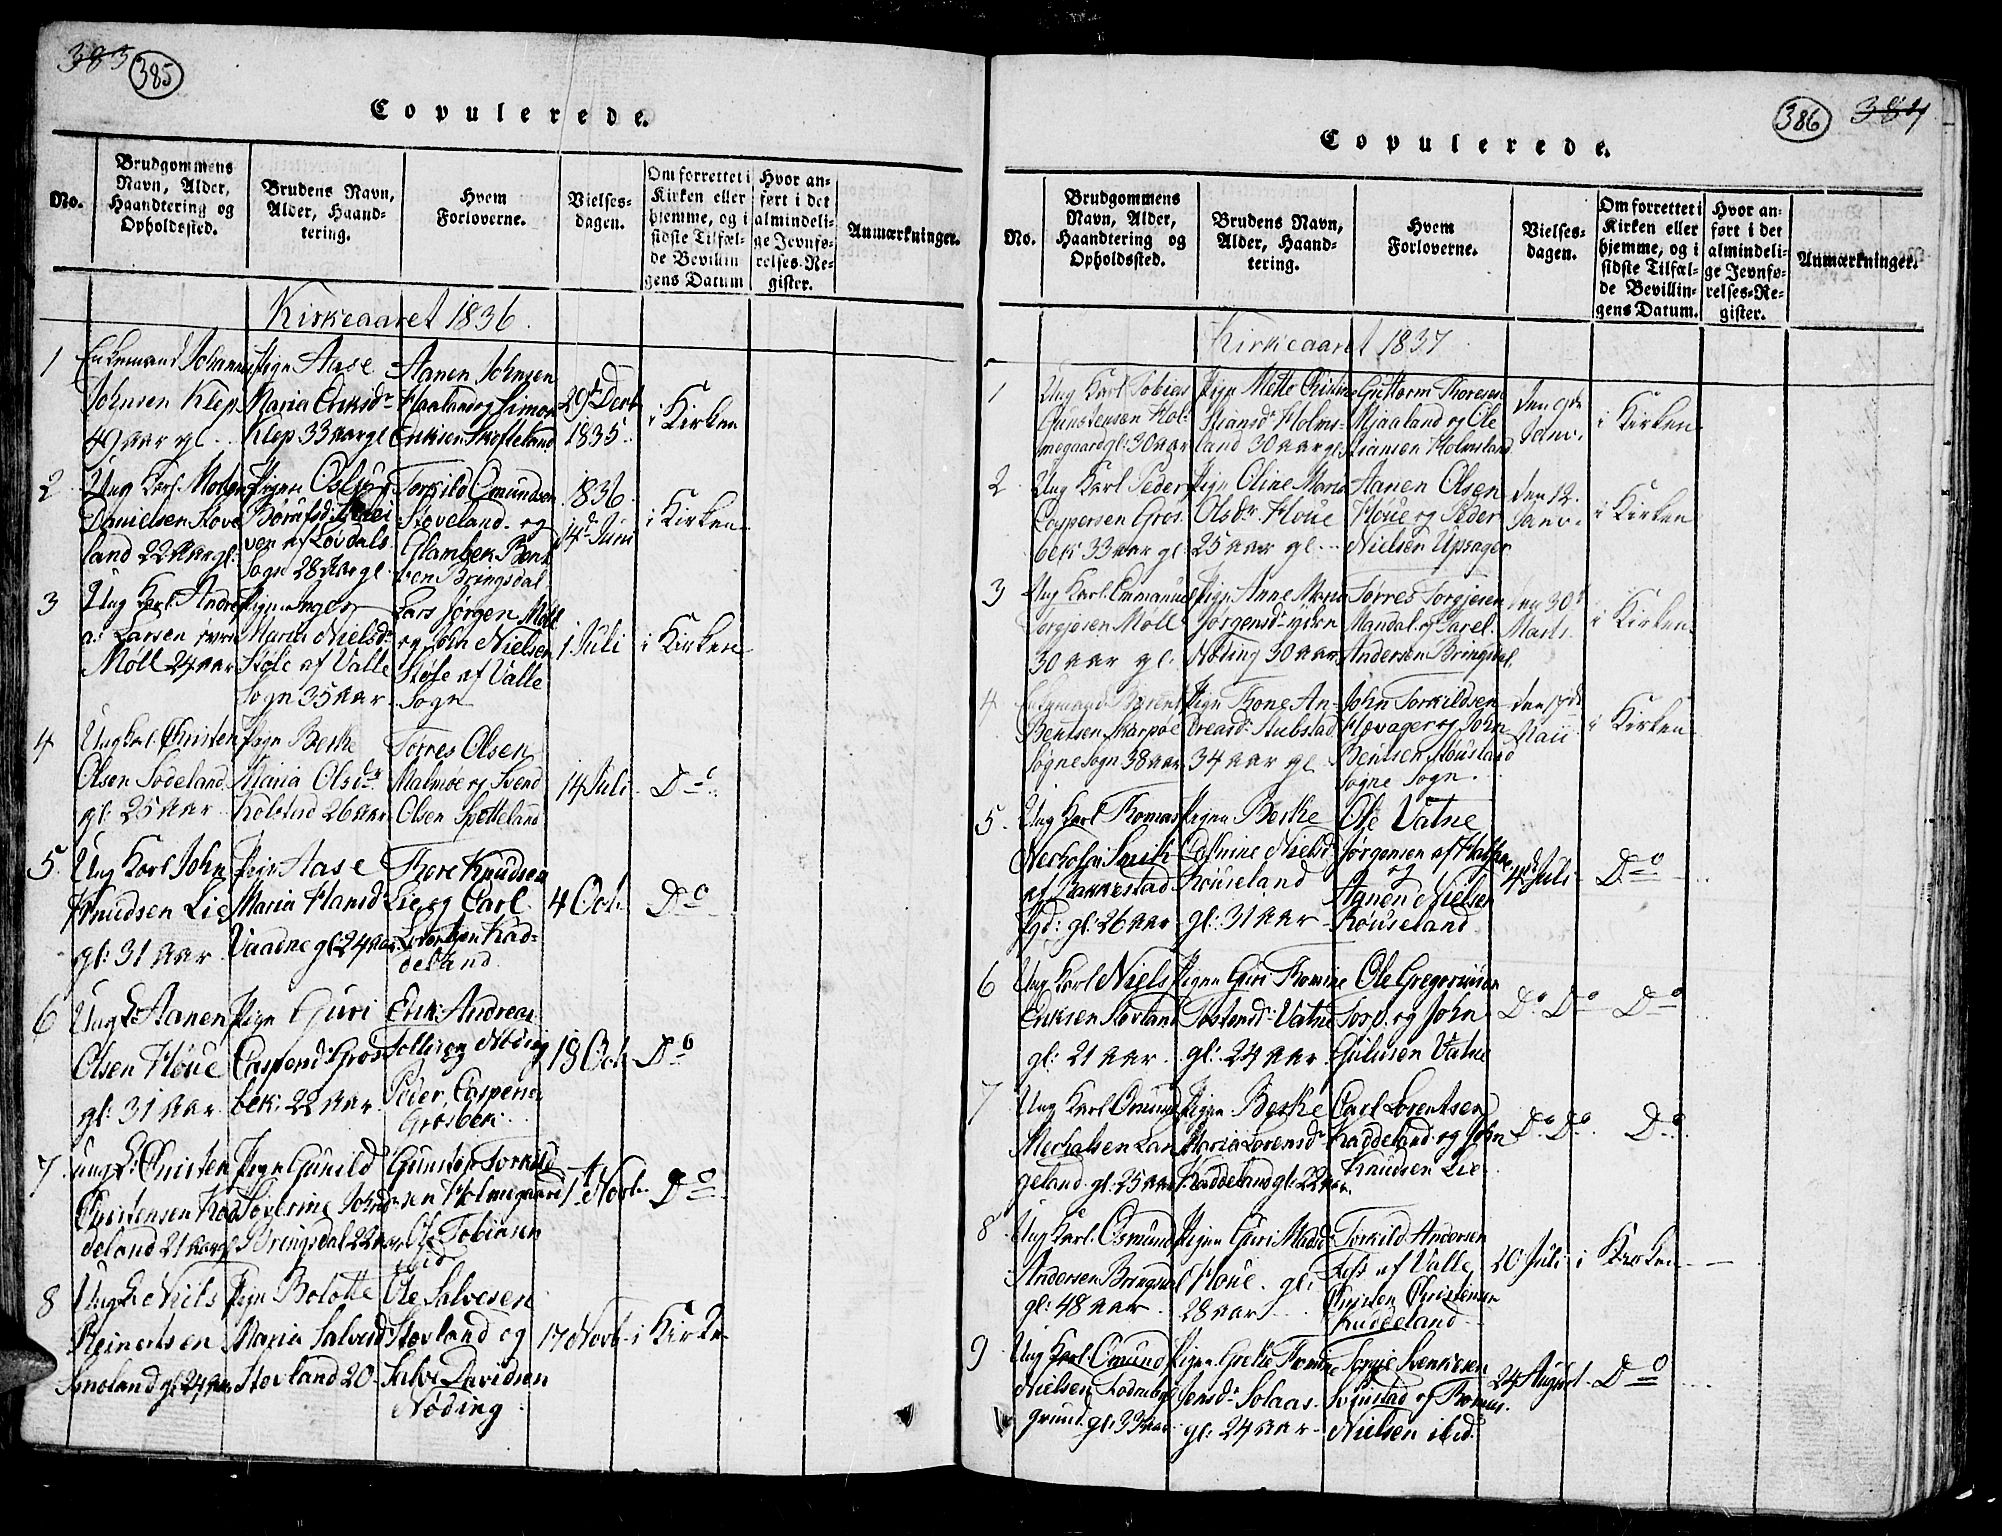 383 385
Copulerede.
No.
Brudgommens
Navn, Alder,
Haandtering og
Opholdssted.
Brudens Navn,
Alder, Haand-
tering.
Hvem
Forloverne.
Vielses-
dagen.
Om forrettet i
Kirken eller
hjemme, og i
sidste Tilfæl-
de Bevillin
gens Datum
Hvor an-
ført i det
almindeli-
ge Jevnfø-
relses-Re-
gister.
Anmærkninger.
Kirkeaaret 1836.
1
Enkemand
Johnsen Klep
49 aar gl.
Pigen Aase
Maria Eriksdr
Klep 33 aar gl
Aanen Johnsen
Haaland og Simon
Eriksen
29de Decbr
1835.
i Kirken
2
Ung Karl
Danielsen Stove
land 22 aar gl.
Pigen
af Løvdals
Sogn 28 aar gl
Torkild Omundsen
Stoveland og
Bringsdal
1836
4de Juni
i Kirken
3
Ung Karl Andre
as Larsen
Møll 24 aar
Pigen Inger
Maria Nielsdr
Støle af Valle
Sogn 35 aar
Lars Jørgen Møll
og John Nielsen
Støle af Valle
Sogn
1 Juli
i Kirken
4
Ung Karl Christen
Olsen Sødeland
gl: 25 aar
Pigen Berthe
Maria Olsdr
26 aar
Torres Olsen
Malmøe og Svend
Olsen
14 Juli
Do
5.
Ung Karl John
Knudsen Lie
gl: 31 aar
Pigen Aase
Maria Hansd
Vaadne gl: 24 aar
Thore Knudsen
Lie og Carl
Lorentsen Kad-
deland
4 Octr
Do
6
Ung K. Aanen
Olsen Høue
gl: 31 aar
Pigen Guri
Caspersd Gros
bek: 22 aar
Erik Andreas
Tollisen Nøding
Peder Caspersen
Grosbek
18 Octr
Do
7
Ung K: Christen
Christensen Kad
deland 21 aar gl
Pigen Gunild
Severine Johnsd
Bringsdal 22 aar
Gunsten Torkild
sen Holmegaard
Ole Tobiasen
ibid
1st Novbr
Do
8
Ung K: Niels
Reinertsen
gl: 24 aar
Pigen Bolette
Maria Salvesd
Stovland 20
Ole Salvesen
Stovland og
Salve Davidsen
Nøding
17 Novbr
i Kirke
386 384
Copulerede.
No.
Brudgommens
Navn, Alder,
Haandtering og
Opholdssted.
Brudens Navn,
Alder, Haand-
tering.
Hvem
Forloverne.
Vielses-
dagen.
Om forrettet i
Kirken eller
hjemme, og i
sidste Tilfæl-
de Bevillin-
gens Datum.
Hvor an-
ført i det
almindeli-
ge Jevnfø-
relses-Re-
gister.
Anmærkninger.
Kirkeaaret 1837
1
Ung Karl Tobias
Gunstensen Hol
megaard gl: 30 aar
Pigen Mette Christine
Stiansdr Holms-
land 30 aar gl
Guttorm Thoresen
Mjaaland og Ole
Stiansen Holmsland
Janv.
i Kirken
2
Ung Karl Peder
Caspersen Gros
bek 33 aar gl:
Pigen Oline Maria
Olsdr Høue
25 aar gl.
Aanen Olsen
Høue og Peder
Nielsen Upsager
Den 12
Janv.
i Kirken
3
Ung Karl Emmanuel
Torgjesen Møll
30 aar gl.
Pigen Anne Maria
Jørgensdr
Nøding 30 aar
Torres Torgjesen
Mandal og Sarel
Andersen Bringsdal
den 30t
Marts
i Kirken
4
Enkemand
Bentsen Skarpøe
Søgne Sogn 38 aar
Pigen Thone An-
dreasdr Stubstad
34 aar gl
John Torkildsen
Høvager og John
Bentsen
Søgne Sogn.
Maii
i Kirken
5.
Ung Karl Thomas
Smith
gl: 26 aar
Pigen Berthe
Nielsd
Røuseland
gl: 31 aar
Ole Vatne
Jørgensen af
og
Aanen Nielsen
Røuseland
4de Juli
Do
6
Ung Karl Niels
Eriksen Stovland
gl: 21 aar
Pigen Guri Thomine
Vatne
gl: 24 aar
Ole Gregoriusen
Torp og John
Vatne
Do Do
Do
7
Ung Karl Omund
Michalsen Lan
geland gl: 25 aar
Pigen Berthe
Maria Lorensdr
Kaddeland gl: 22 aar
Carl Lorentsen
Kaddeland og John
Knudsen Lie
Do Do
Do
8
Ung Karl Osmund
Andersen Bringsdal
gl: 48 aar
Pigen Guri Madsd
Høue gl:
28 aar
Torkild Andersen
af Valle
Christen Christensen
Kaddeland
20 Juli
i Kirken
9
Ung Karl Omund
Nielsen
grund gl: 33 aar
Pigen Grethe Thomine
Jensdr Solaas
gl: 24 aar
og Thomas
Nielsen ibid.
24 August
Do